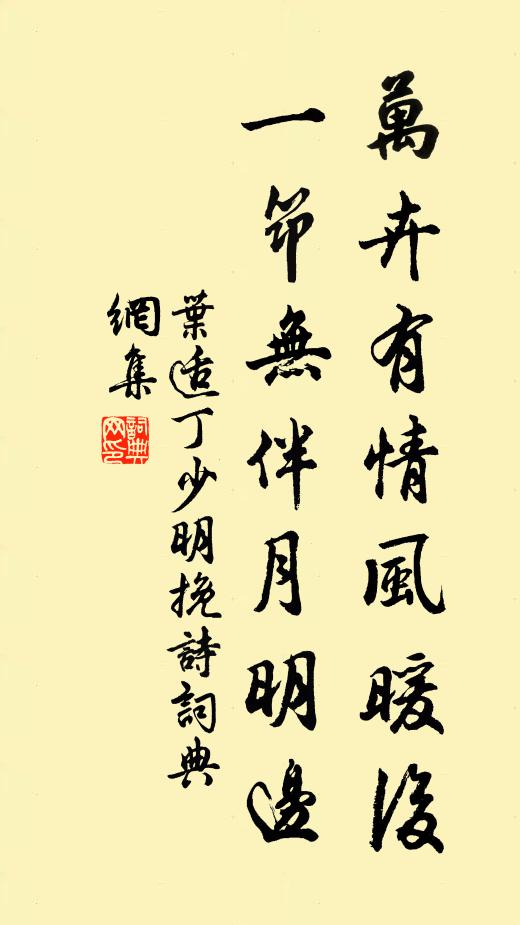 萬卉有情風暖後
一笻無伴月明邊
葉适丁少明挽詩詞典
網集
詞典網印